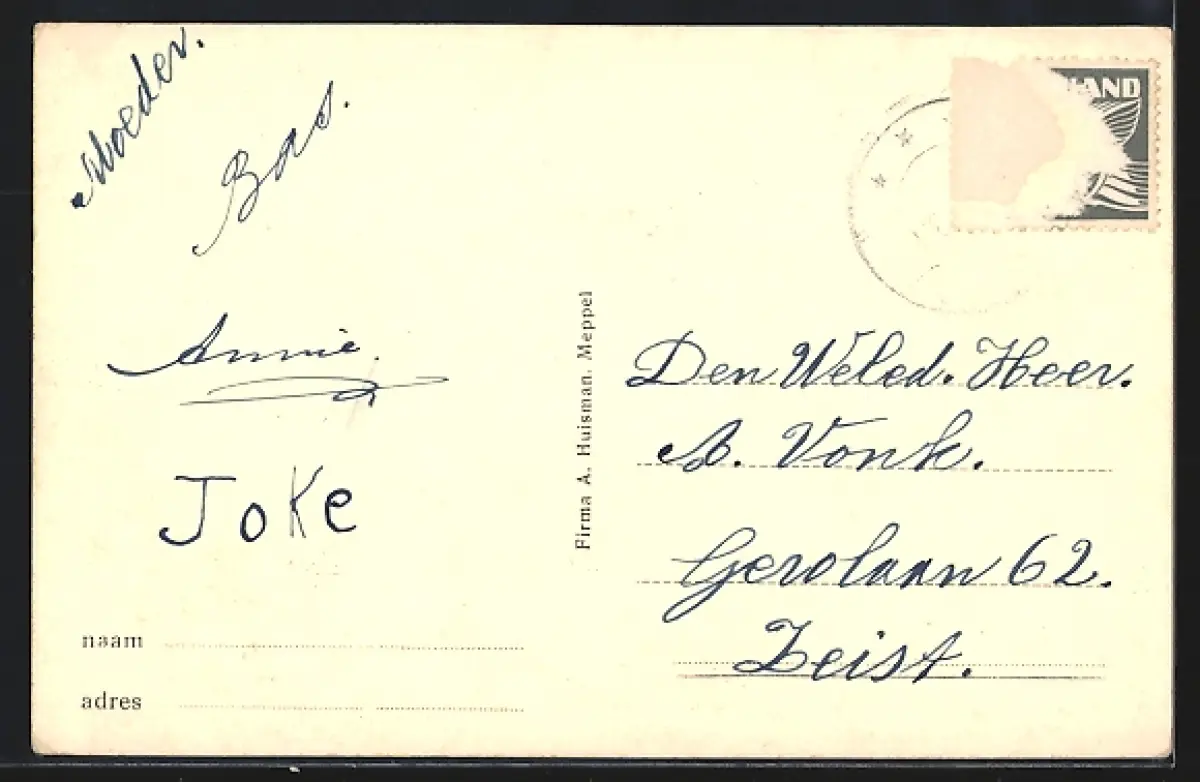 Moeder.
Bas.
Annie.
Joke
naam
adres
Firma A. Huisman, Meppel
LAND
Den Weled. Heer.
A. Vonk.
Gerolaan 62.
Zeist.